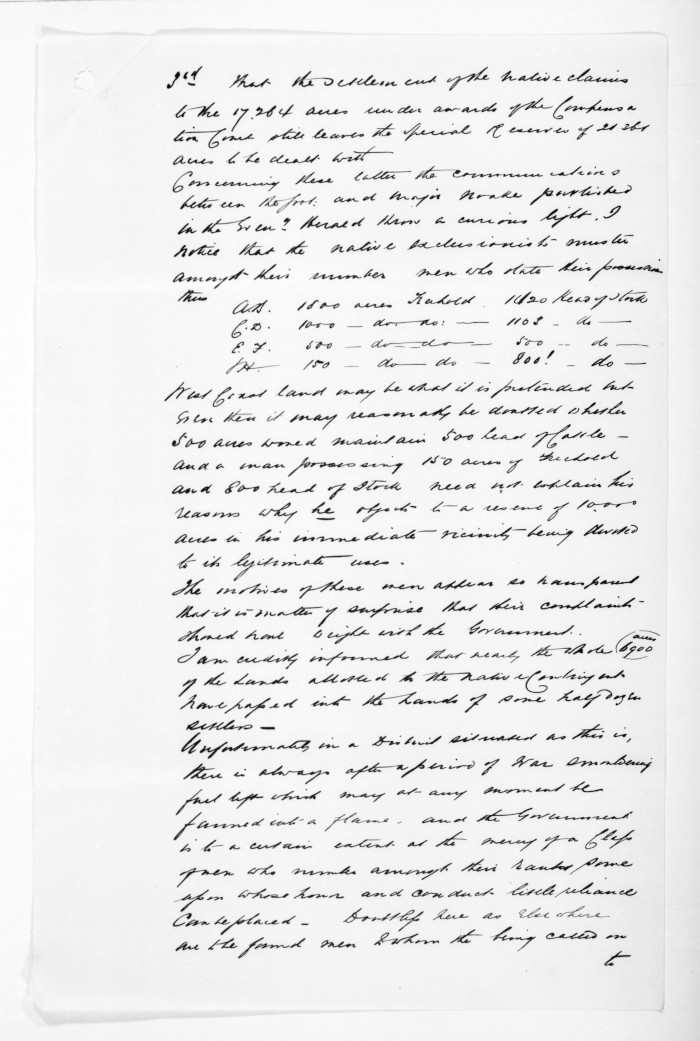 3rd That the settlement of the Native claims
to the 17,264 acres under awards of the Compensa
tion Court still leaves the special Reserves of 21 361
acres to be dealt with
Concerning these latter the communications
between the Govt. and Major Noake published
in the Eveng Herald throw a curious light. I
notice that the native exclusionists muster
amongst their number men who state their possession
thus
A.B. 1600 acres Freehold. 1620 Head of Stock
C.D. 1000 — do — do: — 1103 — do —
E.F. 500 — do — do — 500 — do —
150 — do — do — 800! — do —
West Coast land may be what it is pretended but
even then it may reasonably be doubted whether
500 acres would maintain 500 head of Cattle —
and a man possessing 150 acres of Freehold
and 800 head of Stock need not explain his
reasons why he objects to a reserve of 10,000
acres in his immediate vicinity being devoted
to its legitimate uses.
The motives of these men appear so transparent
that it is matter of surprise that their complaints
should have weight with the Government.
I am credibly informed that nearly the whole 6900 acres
of the Lands allotted to the Native Contingent
have passed into the hands of some half Dozen
settlers —
Unfortunately in a District situated as this is,
there is always after a period of War smouldering
fuel left which may at any moment be
fanned into a flame. and the Government
is to a certain extent at the mercy of a Class
of men who number amongst their ranks, some
upon whose honor and conduct little reliance
can be placed — Doubtless here as elsewhere
are to be found men to whom the being called on
to